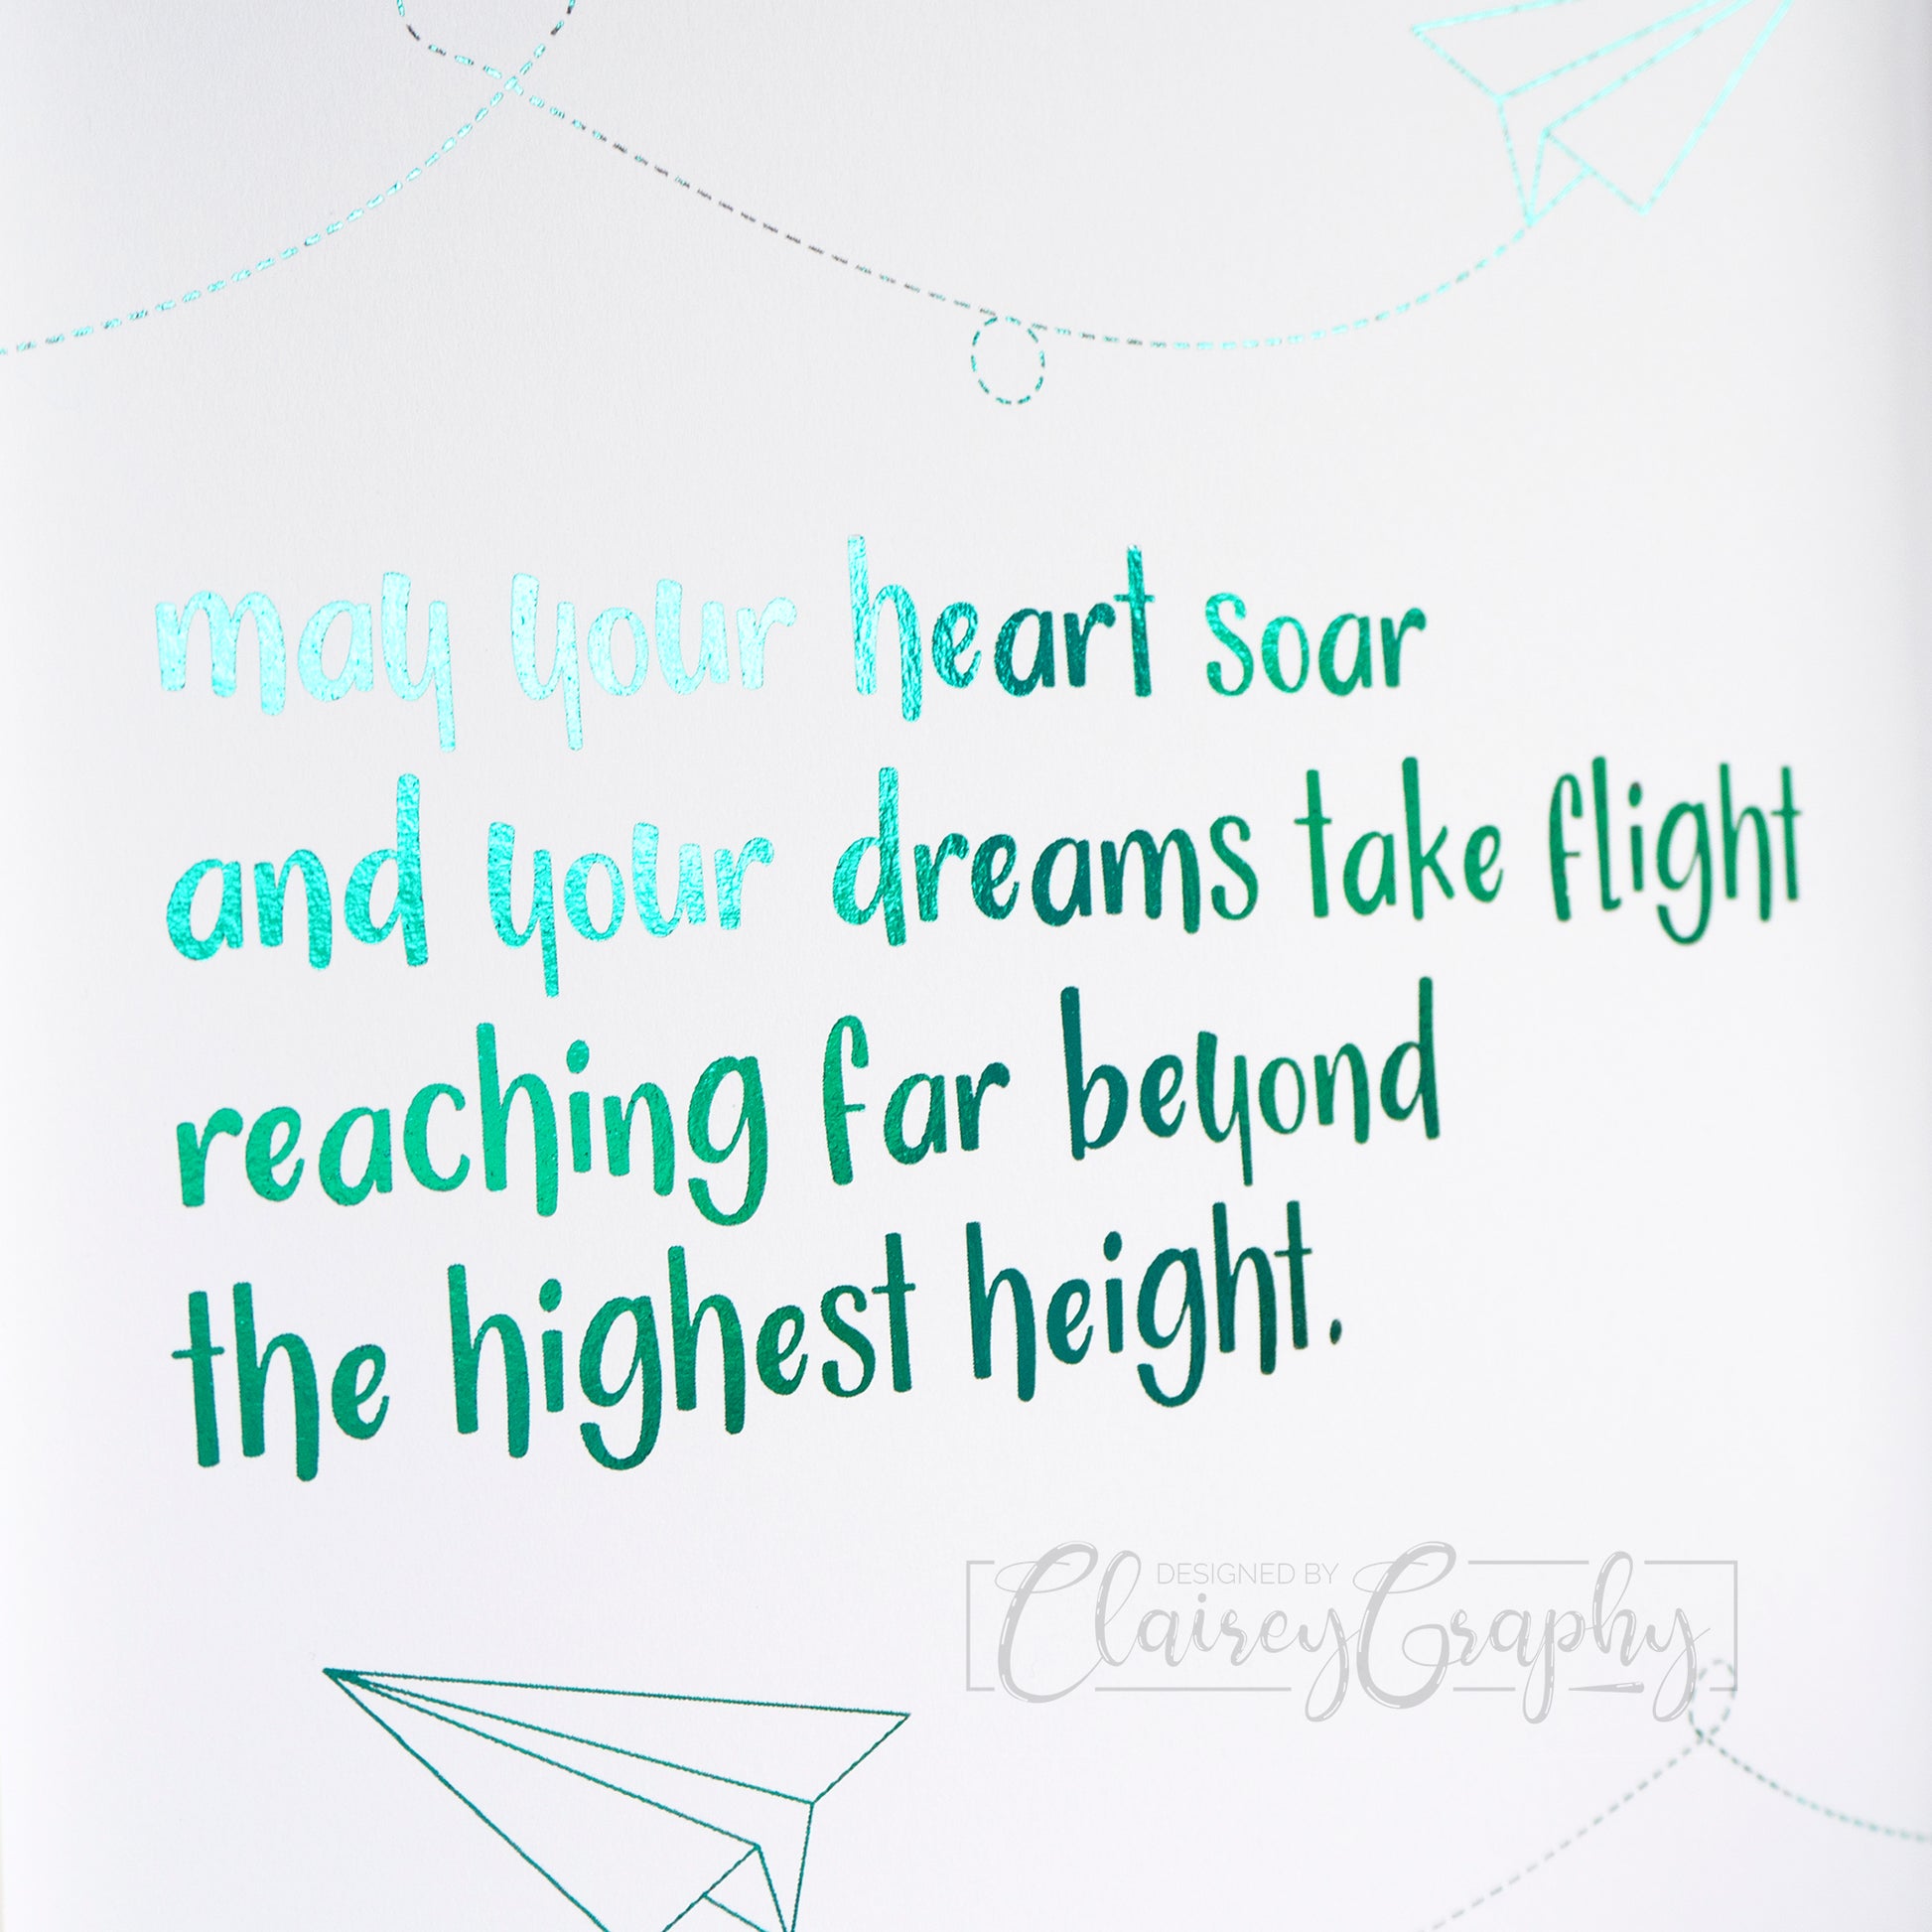 may your heart soar
and your dreams take flight
reaching far beyond
the highest height.
DESIGNED BY
ClaireyGraphy